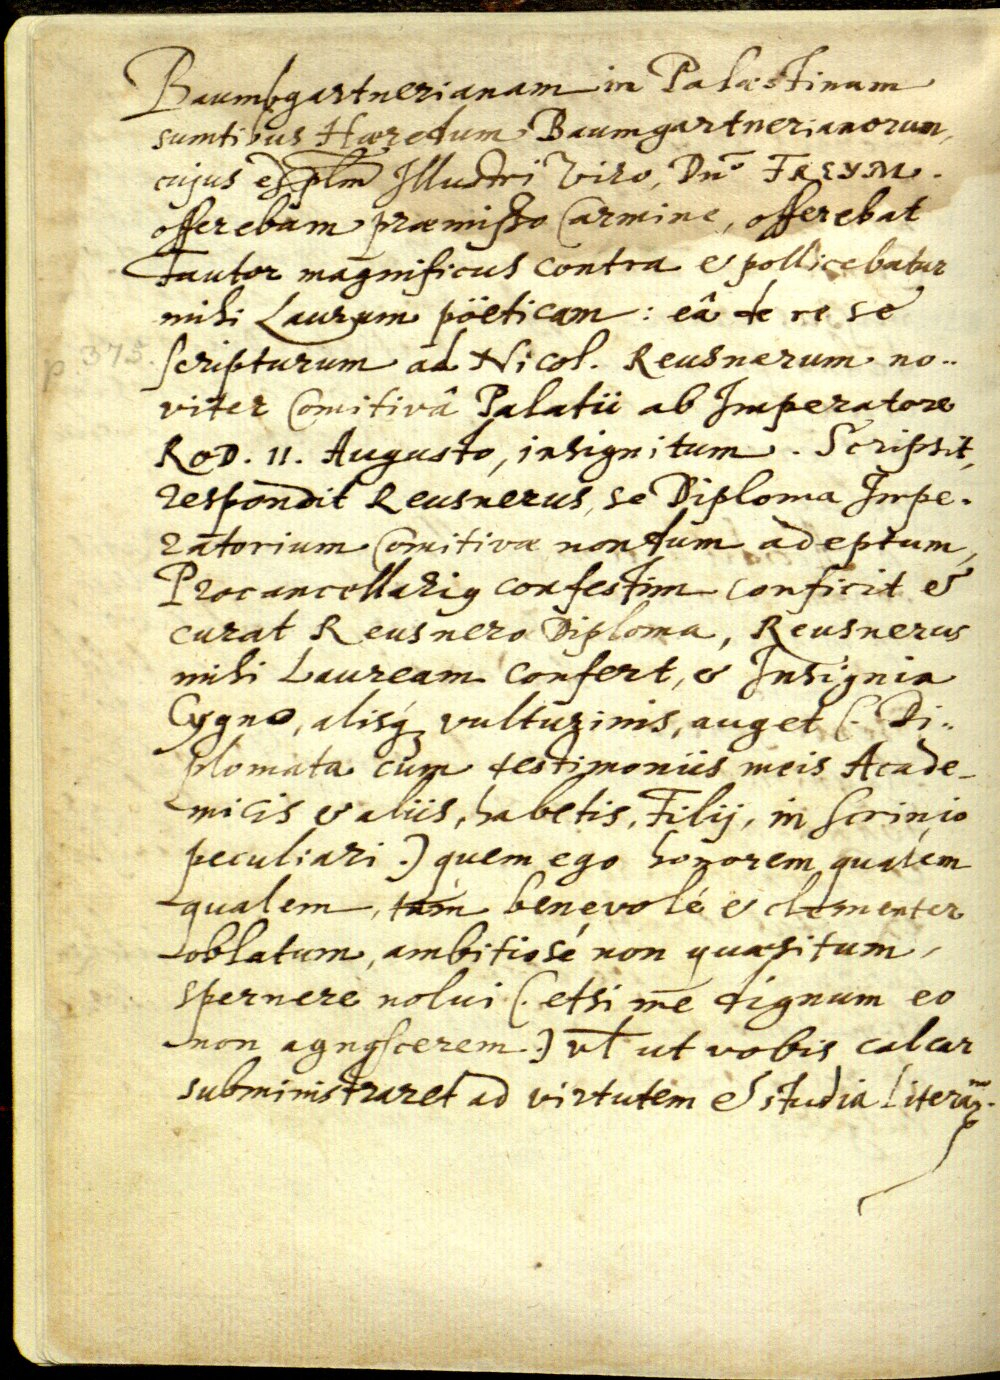 Baumbgartnerianam in Palæstinam
sumtibus Hæredum Baumgartnerianorum,
cujus explm̄ Illustri Viro, Dn̄o FREYM.
offerebam præmisso Carmine, offerebat
Fautor magnificus contra & pollicebatur
mihi Lauream pöeticam: eâ de re se
scripturum ad Nicol. Reusnerum no..
p 375.
viter Comitivâ Palatii ab Imperatore
ROD. II. Augusto, insignitum. Scripsit,
respondit Reusnerus, se Diploma Impe.
ratorium Comitivæ nondum adeptum,
Procancellarig confestim conficit &
curat Reusnero Diploma, Reusnerus
mihi Lauream confert, & Insignia
Cygno, alisq; vulturinis, auget (. Di..
plomata cum testimoniis meis Acade-
micis & aliis, habetis, Filij, in scrinio
peculiari.) quem ego honorem qualem
qualem, tam benevolé & clementer
oblatum, ambitiosé non quæsitum,
spernere nolui (. etsi me dignum eo
non agnoscerem.) vl ut vobis calcar
subministraret ad virtutem & studia literarum.